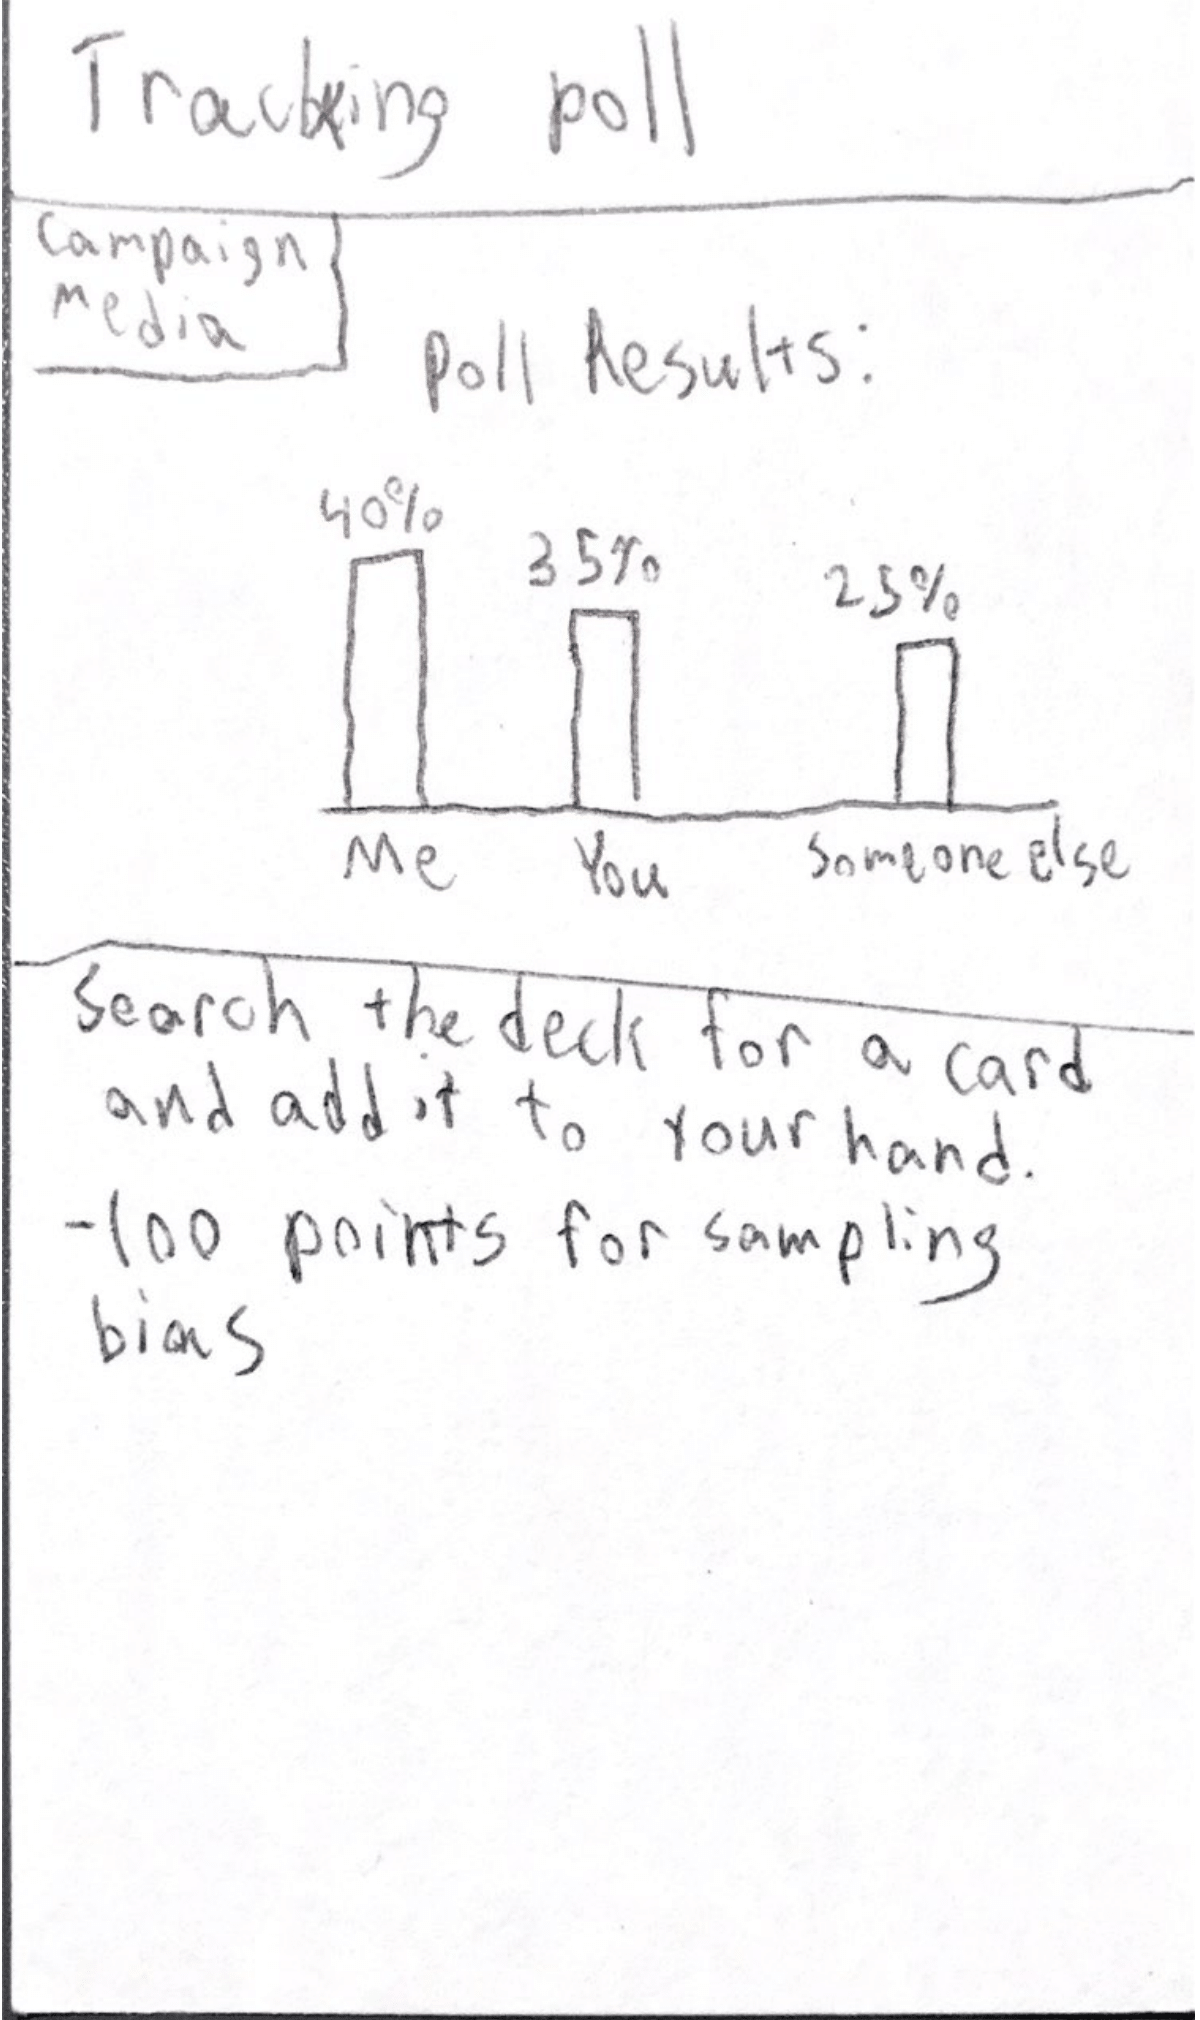 Tracking poll
Campaign
Media
Poll Results:
40%
35%
25%
Me
You
Someone else
Search the deck for a card
and add it to your hand.
-100 points for sampling
bias